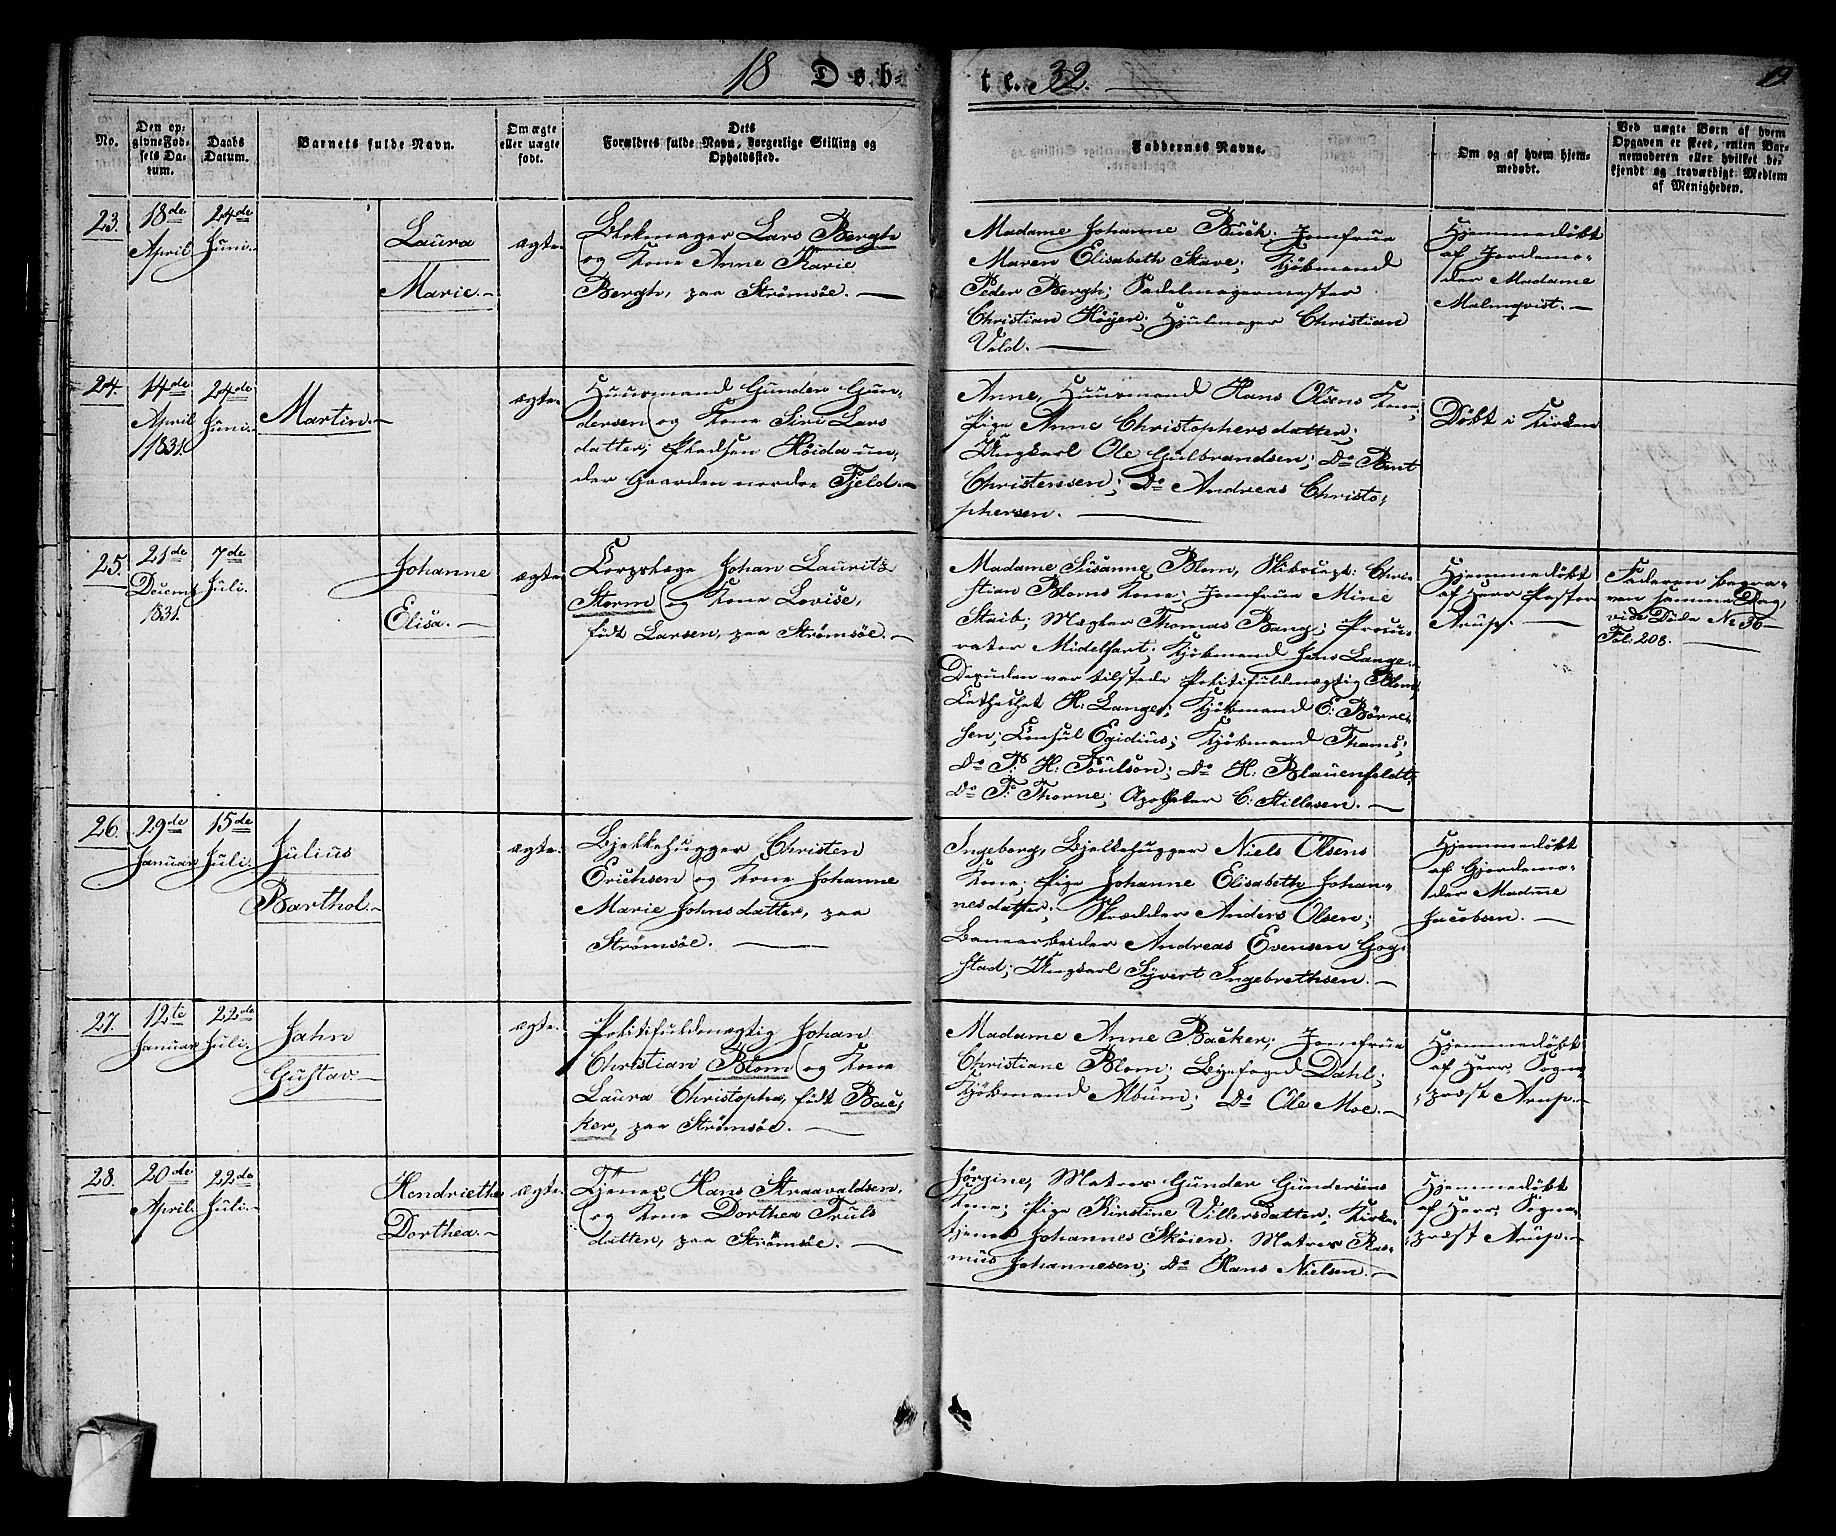 18 Døb=
te. 32.
19.
No.
Den op=
givne Fød=
sels Da=
tum.
Daabs
Datum.
Barnets fulde Navn.
Om ægte
eller uægte
født.
Dets
Forældres fulde Navn, borgerlige Stilling og
Opholdssted.
Faddernes Navne.
Om og af hvem hjem=
medøbt.
Ved uægte Børn af hvem
Opgaven er skeet, enten Bar=
nemoderen eller hvilket be=
kjendt og troværdigt Medlem
af Menigheden.
23.
18de
April
24de
Juni.
Laura
Marie.
ægte
Blokmager Lars Bergh
og Kone Anne Karie
Bergh, paa Strømsøe.
Madame Johanne Buck; Jomfrue
Maren Elisabeth Stave; Kjøbmand
Peder Bergh; Sadelmagermester
Christian Høyer; Hjulmager Christian
Vold.
Hjemmedøbt
af Jordemo-
der Madame
Malmqvist.
24.
14de
April
1831.
24de
Juni.
Martin.
ægte
Huusmand Gunder Gun-
dersen og Kone Siri Lars
datter; Pladsen Høida un-
der Gaarden nordre Fjeld.
Anne, Huusmand Hans Olsens Kone;
Pige Anne Christophersdatter;
Ungkarl Ole Gulbrandsen; Do Bent
Christensen; Do Andreas Christo-
phersen.
Døbt i Kirken
25.
21de
Decemb
1831.
7de
Juli.
Johanne
Elisa.
ægte
Corpslæge Johan Lauritz
Storm og Kone Lovise,
født Larsen, paa Strømsøe.
Madame Susanne Blom, Skibscapt: Chri-
stian Bloms Kone; Jomfrue Mine
Staib; Mægler Thomas Bang; Procu-
rator Midelfart; Kjøbmand Jens Lange.
Desuden var tilstede Politifuldmægtig Blom,
Cathechet H: Lange; Kjøbmand E: Børre-
sen; Consul Egidius; Kjøbmand Thams;
Do P: H: Poulson; Do H: Blauenfeldt;
Do F: Thorne; Apotheker C: Stillesen.
Hjemmedøbt
af Hær Pastor
Arup.
Faderen begra-
ven samme Dag,
vide Døde No 36
Fol: 208.
26.
29de
Januar
15de
Juli.
Julius
Barthol.
ægte.
Bjelkehugger Christen
Erichsen og Kone Johanne
Marie Johnsdatter, paa
Strømsøe.
Ingeborg, Bjelkehugger Niels Olsens
Kone; Pige Johanne Elisabeth Johan-
nesdatter; Skrædder Anders Olsen;
Andreas Evensen Gog-
stad; Ungkarl Syvert Ingebrethsen.
Hjemmedøbt
af Gjordemo-
der Madme
Jacobsen.
27.
12te
Januar
22de
Juli.
Jahn
Gustav.
ægte.
Politifuldmægtig Johan
Christian Blom og Kone
Laura Christopha, født Bac-
ker, paa Strømsøe.
Madame Anne Backer; Jomfrue
Christiane Blom; Byefoged Dahl;
Kjøbmand Album; Do Ole Moe.
Hjemmedøbt
af Herr Sogne-
præst Arup.
28.
20de
April.
22de
Juli.
Hendriethe
Dorthea.
ægte
Tjener Hans Straavaldsen,
og Kone Dorthea Truls
datter, paa Strømsøe.
Jørgine, Matros Gunder Gundersens
Kone; Pige Kirstine Villersdatter; Kirke-
tjener Johannes Skøien. Matros Ras-
mus Johannesen; Do Hans Nielsen.
Hjemmedøbt
af Herr Sogne-
præst Arup.